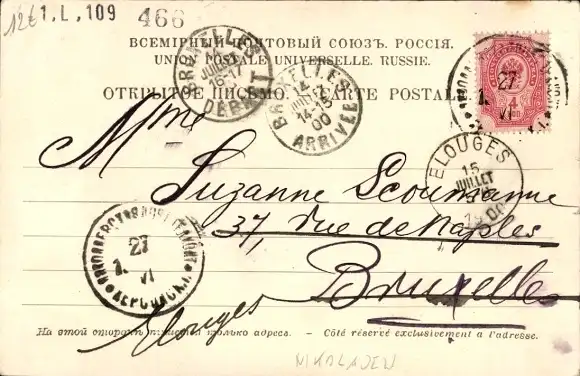 12€ 1.L.109 466
ВСЕМІРНЫЙ ПОЧТОВЫЙ СОЮЗЪ. РОССІЯ.
UNION POSTALE UNIVERSELLE. RUSSIE.
ОТКРЫТОЕ ПИСЬМО. CARTE POSTALE.
BRUXELLES
14 JUILLET
16-17
DÉPART
BRUXELLES
14 JUILLET
14-15
00
ARRIVÉE
27
VI
4
ELOUGES
15
JUILLET
Mme
Suzanne Scoumanne
37, Rue de Naples
Bruxelles
27
1.
VI
Elouges
На этой сторонѣ пишется только адресъ. – Côté réservé exclusivement à l'adresse.
NIKOLAJEW